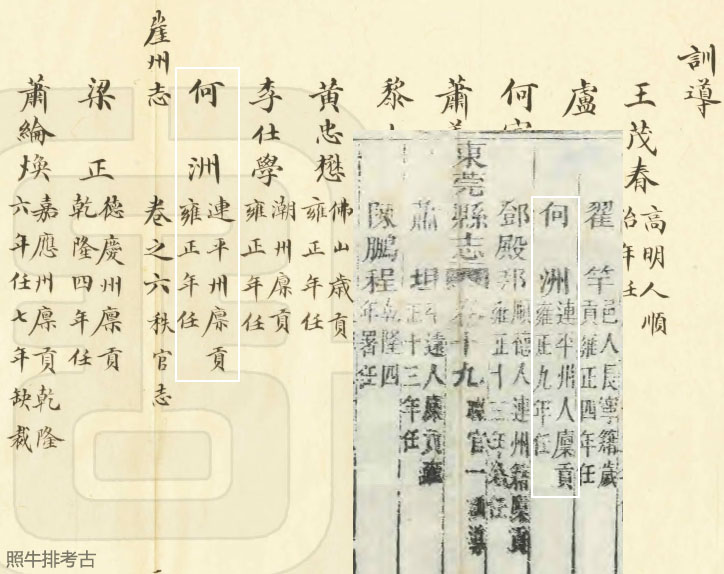 訓導
王茂春 高明人順治年任
盧
何
蕭
黎
黃忠懋 佛山歲貢雍正年任
李仕學 潮州廩貢雍正年任
何洲 連平州廩貢雍正年任
崖州志 卷之六 秩官志
梁正 德慶州廩貢乾隆四年任
蕭綸煥 嘉應州廩貢乾隆六年任七年缺裁
翟竿 邑人長寧籍歲貢雍正四年任
何洲 連平州人廩貢雍正九年任
鄧殿邦 順德人連州籍廩貢雍正十三年任
東莞縣志 卷十九 職官一 訓導
蕭坦 遠人廩貢雍正十三年任
陳鵬程 乾隆四年署任
照牛排考古